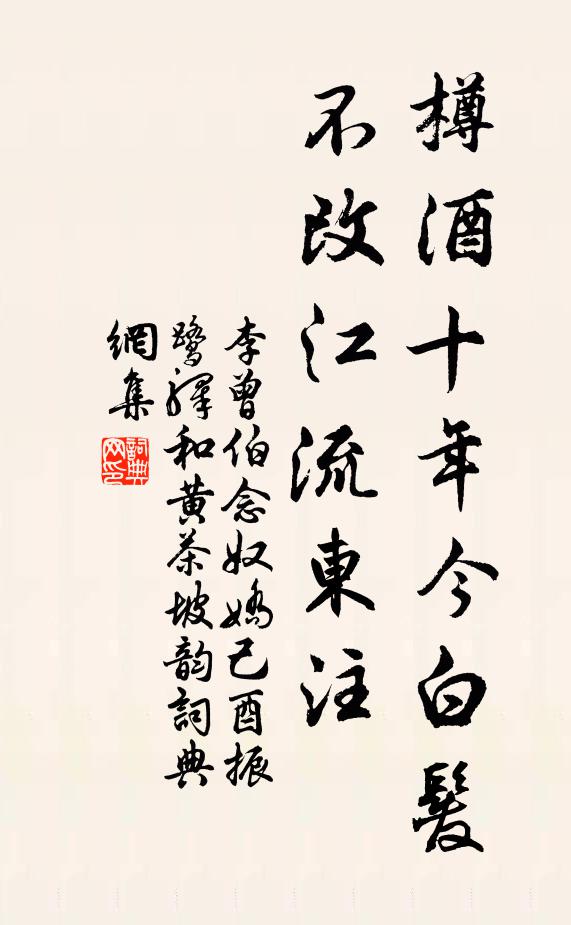 樽酒十年今白髮
不改江流東注
李曾伯念奴嬌己酉振
鷺驛和黃茶坡韵詞典
網集
詞典網印